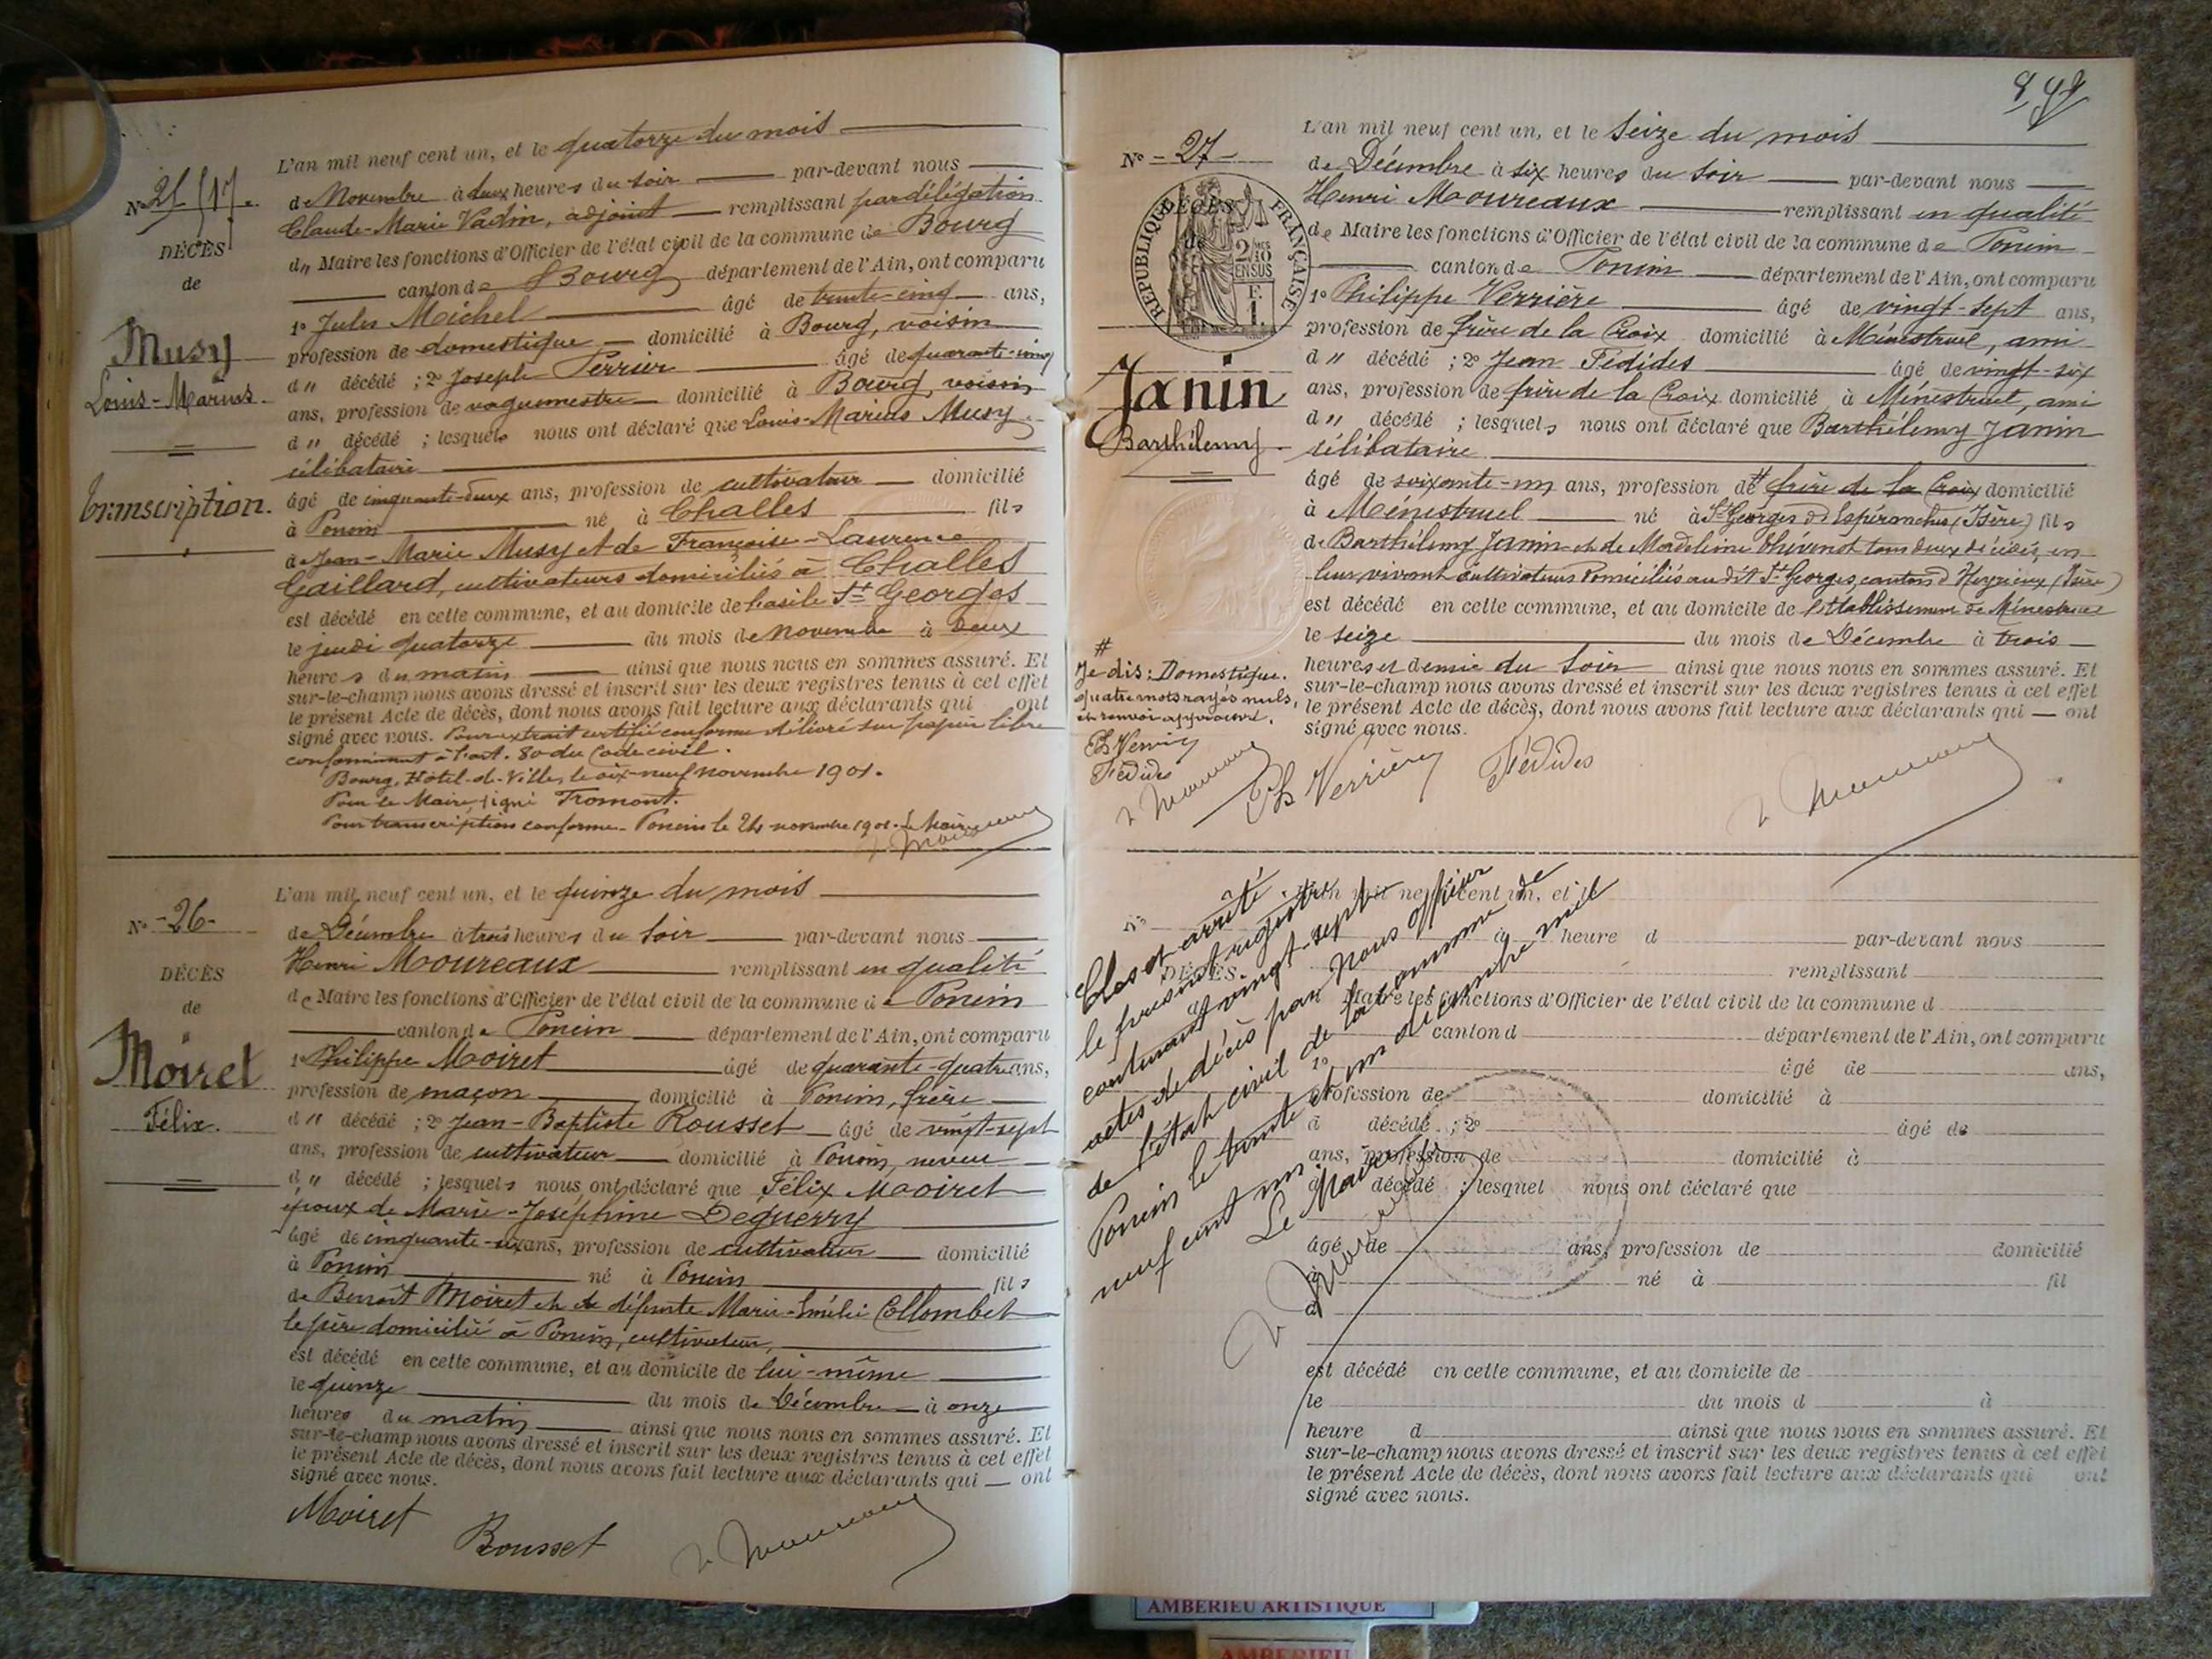 L'an mil neuf cent un, et le quatorze du mois
de Novembre à deux heures du soir par-devant nous
Claude-Marie Vadin, adjoint remplissant par délégation
d" Maire les fonctions d'Officier de l'état civil de la commune de Bourg
canton de Bourg département de l'Ain, ont comparu
1º Jules Michel âgé de trente-cinq ans,
profession de domestique domicilié à Bourg, voisin
d" décédé ; 2º Joseph Perrier âgé de quarante-cinq
ans, profession de vaguemestre domicilié à Bourg, voisin
d" décédé ; lesquels nous ont déclaré que Louis-Marius Musy
célibataire
âgé de cinquante-deux ans, profession de cultivateur domicilié
à Poncin né à Challes fils
de Jean-Marie Musy et de Françoise-Laurence
Gaillard, cultivateurs domiciliés à Challes
est décédé en cette commune, et au domicile de l'asile St Georges
le jeudi quatorze du mois de novembre à deux
heures du matin ainsi que nous nous en sommes assuré. Et
sur-le-champ nous avons dressé et inscrit sur les deux registres tenus à cet effet
le présent Acte de décès, dont nous avons fait lecture aux déclarants qui ont
signé avec nous. Pour extrait certifié conforme délivré sur papier libre
conformément à l'art. 80 du Code civil.
Bourg, Hôtel-de-Ville, le dix-neuf novembre 1901.
Pour le Maire, signé Tromont.
Pour transcription conforme - Poncin le 24 novembre 1901. Le Maire
DÉCÈS
de
Musy
Louis-Marius.
Transcription.
Nº -26-
DÉCÈS
de
Moiret
Félix.
L'an mil neuf cent un, et le quinze du mois
de Décembre à trois heures du soir par-devant nous
Henri Moureaux remplissant en qualité
de Maire les fonctions d'Officier de l'état civil de la commune de Poncin
canton de Poncin département de l'Ain, ont comparu
1º Philippe Moiret âgé de quarante-quatre ans,
profession de maçon domicilié à Poncin, frère
d" décédé ; 2º Jean-Baptiste Rousset âgé de vingt-sept
ans, profession de cultivateur domicilié à Poncin, neveu
d" décédé ; lesquels nous ont déclaré que Félix Moiret
époux de Marie-Joséphine Deguerry
âgé de cinquante-ans, profession de cultivateur domicilié
à Poncin né à Poncin fils
de Benoît Moiret et de défunte Marie-Emélie Collombet
le père domicilié à Poncin, cultivateur,
est décédé en cette commune, et au domicile de lui-même
le quinze du mois de Décembre à onze
heures du matin ainsi que nous nous en sommes assuré. Et
sur-le-champ nous avons dressé et inscrit sur les deux registres tenus à cet effet
le présent Acte de décès, dont nous avons fait lecture aux déclarants qui ont
signé avec nous.
Moiret
Rousset
Nº -27-
DÉCÈS
de
RÉPUBLIQUE FRANÇAISE
2/10
EN SUS
Janin
Barthélemy
L'an mil neuf cent un, et le seize du mois
de Décembre à six heures du soir par-devant nous
Henri Moureaux remplissant en qualité
de Maire les fonctions d'Officier de l'état civil de la commune de Poncin
canton de Poncin département de l'Ain, ont comparu
1º Philippe Verrière âgé de vingt-sept ans,
profession de frère de la Croix domicilié à Ménestruel, ami
d" décédé ; 2º Jean Fédides âgé de vingt-six
ans, profession de frère de la Croix domicilié à Ménestruel, ami
d" décédé ; lesquels nous ont déclaré que Barthélemy Janin
célibataire
âgé de soixante-un ans, profession de # frère de la Croix domicilié
à Ménestruel né à St Georges d'Espéranche (Isère) fils
de Barthélemy Janin et de Madeleine Thévenot tous deux décédés, en
leur vivant cultivateurs domiciliés au dit St Georges, canton d'Heyrieux (Isère)
est décédé en cette commune, et au domicile de l'établissement de Ménestruel
le seize du mois de Décembre à trois
heures et demie du soir ainsi que nous nous en sommes assuré. Et
sur-le-champ nous avons dressé et inscrit sur les deux registres tenus à cet effet
le présent Acte de décès, dont nous avons fait lecture aux déclarants qui ont
signé avec nous.
#
Je dis : Domestique.
quatre mots rayés nuls,
et renvoi approuvé.
Fédides
Ph Verrière
Fédides
Clos et arrêté
le présent registre
contenant vingt-sept
actes de décès par Nous officier
de l'état civil de la commune de
Poncin le trente et un décembre mil
neuf cent un
Le Maire
mil neuf cent un, et
heure d par-devant nous
remplissant
DÉCÈS
Maire les fonctions d'Officier de l'état civil de la commune d
canton d département de l'Ain, ont comparu
1º âgé de ans,
profession de domicilié à
d décédé ; 2º âgé de
ans, profession de domicilié à
d décédé ; lesquel nous ont déclaré que
âgé de ans, profession de domicilié
à né à fil
d
est décédé en cette commune, et au domicile de
le du mois d à
heure d ainsi que nous nous en sommes assuré. Et
sur-le-champ nous avons dressé et inscrit sur les deux registres tenus à cet effet
le présent Acte de décès, dont nous avons fait lecture aux déclarants qui ont
signé avec nous.
AMBERIEU ARTISTIQUE
AMBERIEU